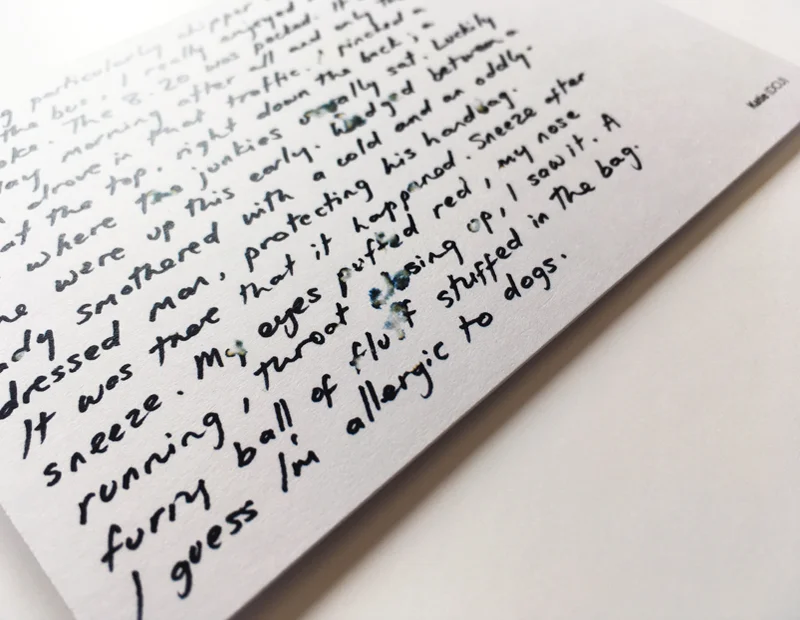 particularly chipper
the bus, I really enjoyed
The 8.20 was packed.
morning after all and only
drove in that traffic. I
at the top, right down the back
where the junkies usually sat. Luckily
were up this early. Wedged between a
smothered with a cold and an oddly
dressed man, protecting his handbag.
It was there that it happened. Sneeze after
sneeze. My eyes puffed red, my nose
running, throat closing up, I saw it. A
furry ball of fluff stuffed in the bag.
I guess I'm allergic to dogs.